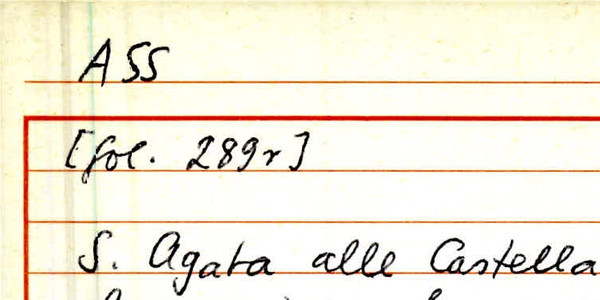 ASS
[fol. 289r]
S. Agata alle Castella